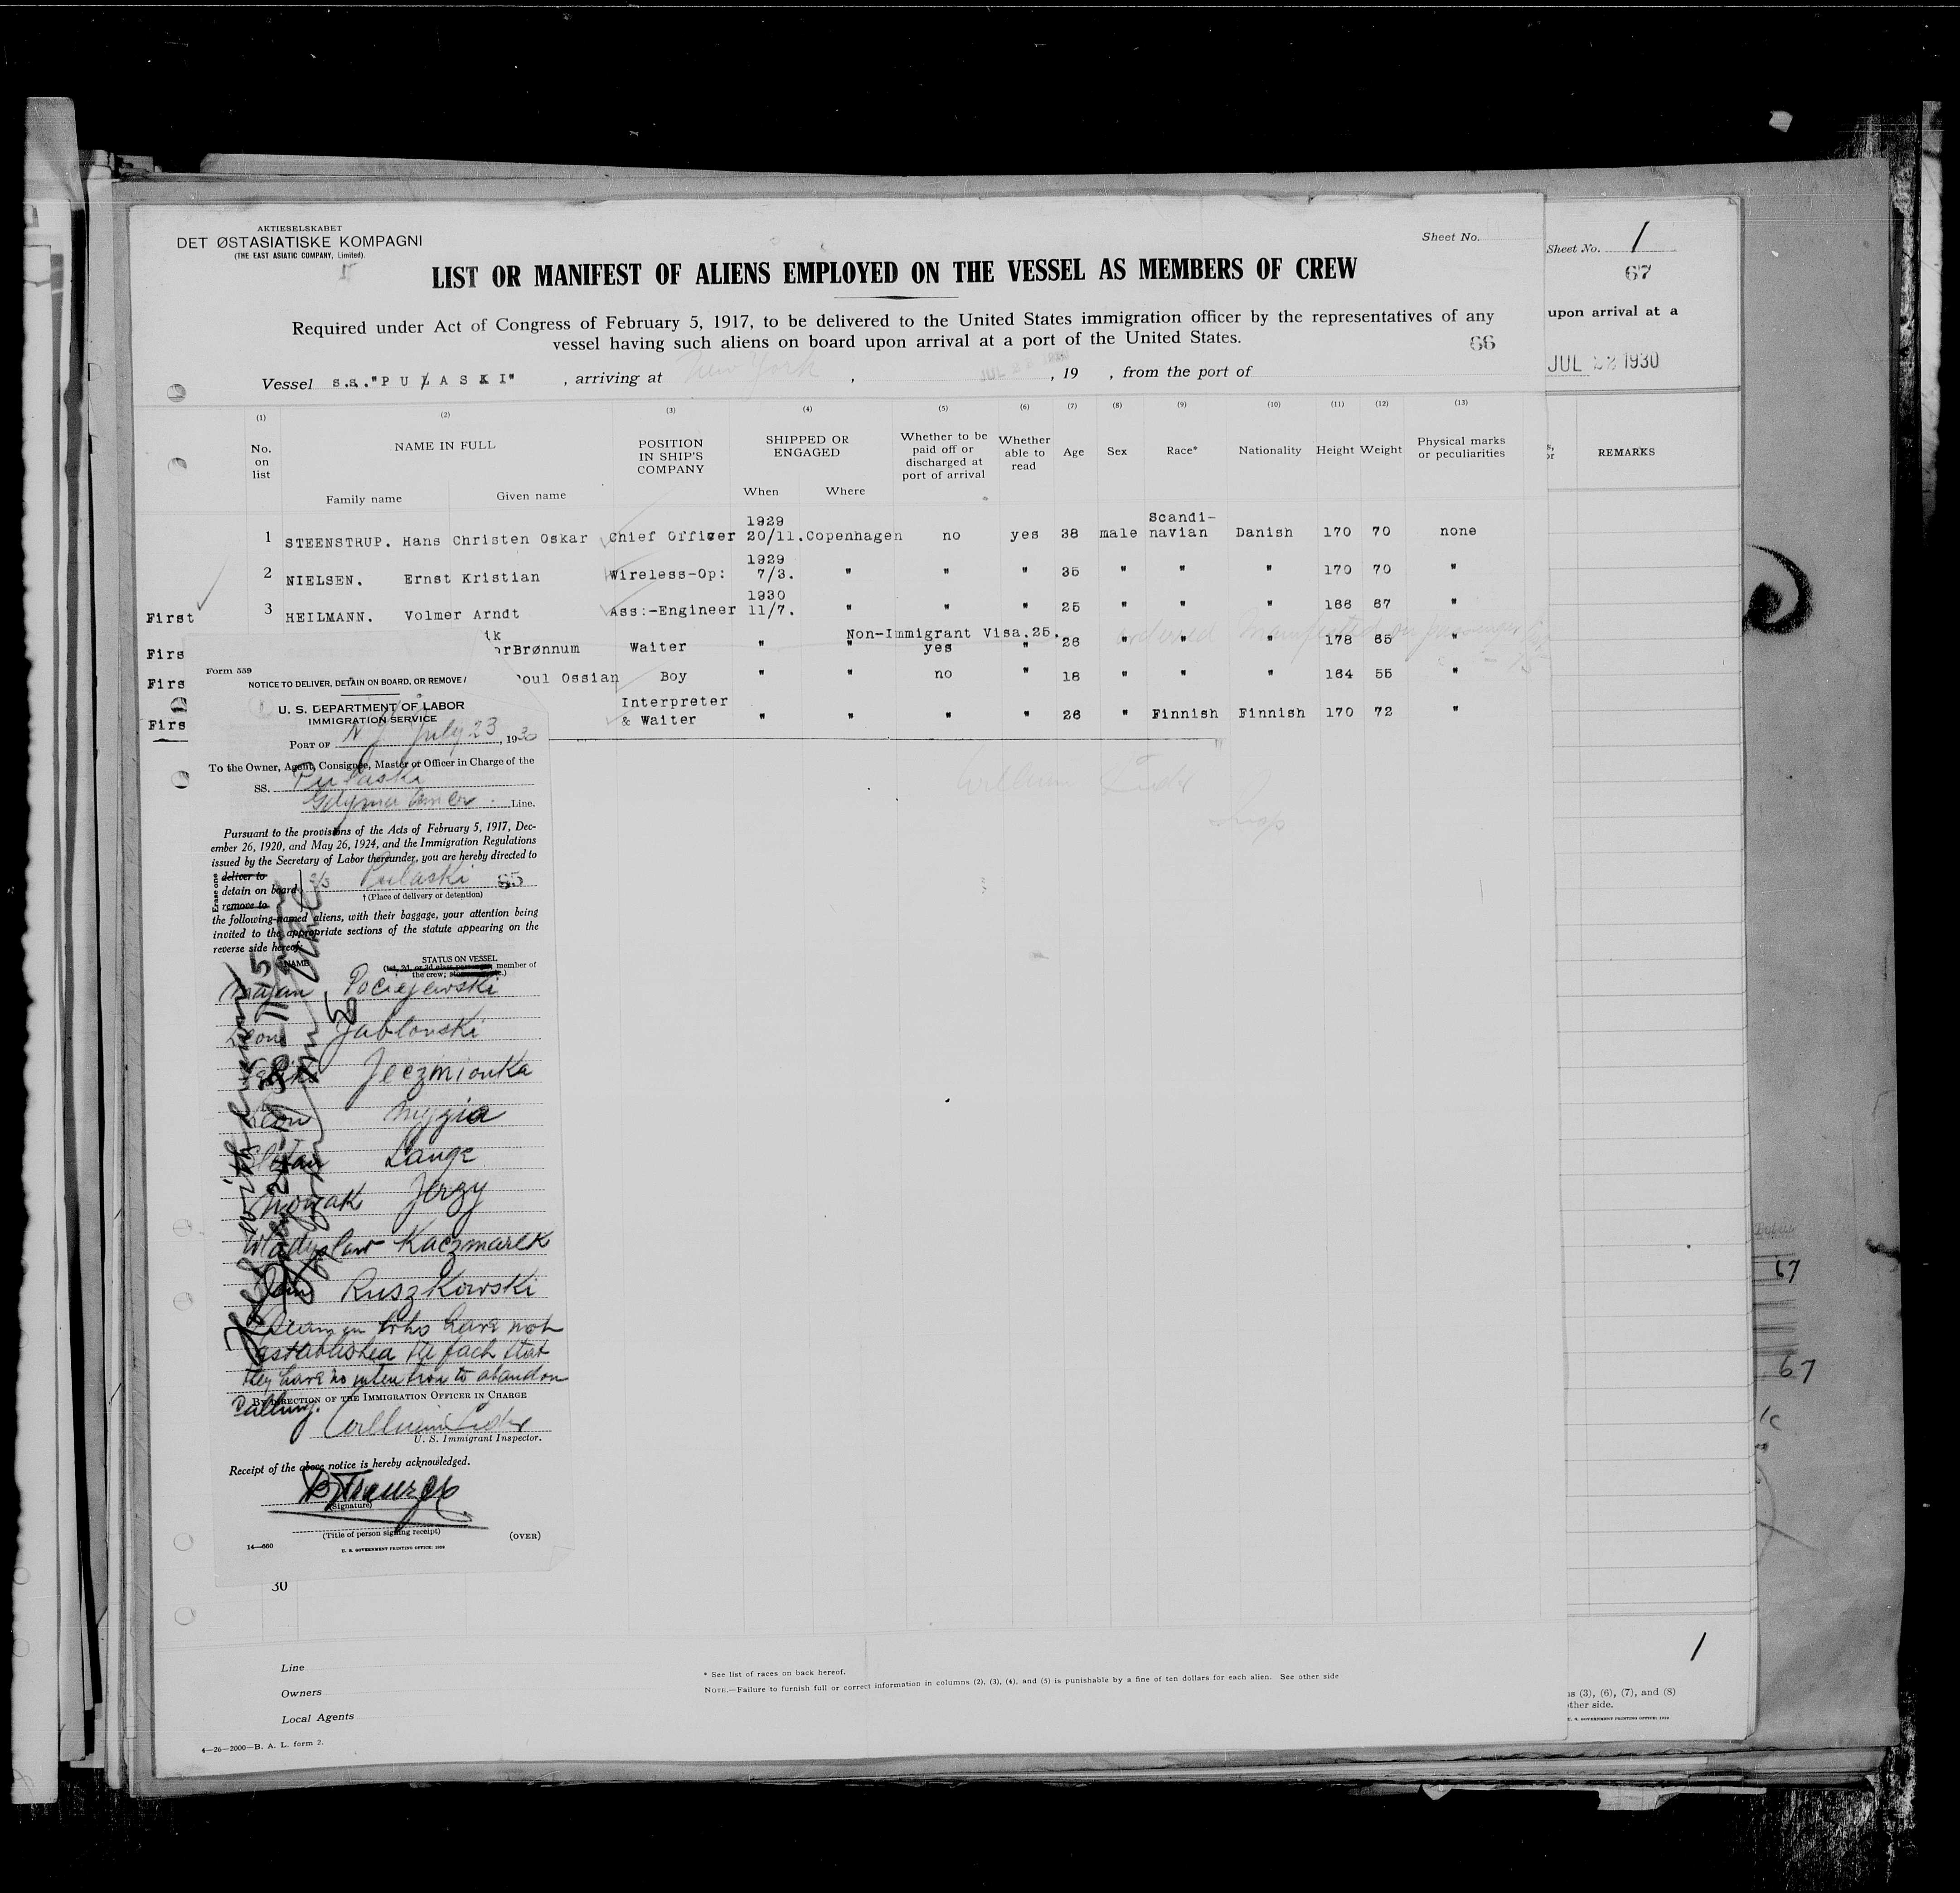 AKTIESELSKABET
DET ØSTASIATISKE KOMPAGNI
(THE EAST ASIATIC COMPANY, Limited).
Sheet No.
Sheet No. 1
67
LIST OR MANIFEST OF ALIENS EMPLOYED ON THE VESSEL AS MEMBERS OF CREW
Required under Act of Congress of February 5, 1917, to be delivered to the United States immigration officer by the representatives of any
vessel having such aliens on board upon arrival at a port of the United States.
66
upon arrival at a
JUL 22 1930
Vessel s.s."PULASKI" , arriving at New York , , 19 , from the port of
(1) (2) (3) (4) (5) (6) (7) (8) (9) (10) (11) (12) (13)
No. on list
NAME IN FULL
Family name Given name
POSITION IN SHIP'S COMPANY
SHIPPED OR ENGAGED
When Where
Whether to be paid off or discharged at port of arrival
Whether able to read
Age Sex Race* Nationality Height Weight
Physical marks or peculiarities
REMARKS
1 STEENSTRUP. Hans Christen Oskar Chief Officer 1929 20/11. Copenhagen no yes 38 male Scandi-navian Danish 170 70 none
2 NIELSEN. Ernst Kristian Wireless-Op: 1929 7/3. " " " 35 " " " 170 70 "
First 3 HEILMANN. Volmer Arndt Ass:-Engineer 1930 11/7. " " " 25 " " " 166 67 "
Non-Immigrant Visa.25.
Firs ik orBrønnum Waiter " " yes " 26 " " " 178 65 "
Firs oul Ossian Boy " " no " 18 " " " 164 55 "
Firs Interpreter & Waiter " " " " 26 " Finnish Finnish 170 72 "
Form 559
NOTICE TO DELIVER, DETAIN ON BOARD, OR REMOVE
U. S. DEPARTMENT OF LABOR
IMMIGRATION SERVICE
PORT OF N Y July 23, 1930
To the Owner, Agent, Consignee, Master or Officer in Charge of the
SS. Pulaski
Gdynia Amer. Line.
Pursuant to the provisions of the Acts of February 5, 1917, Dec-
ember 26, 1920, and May 26, 1924, and the Immigration Regulations
issued by the Secretary of Labor thereunder, you are hereby directed to
Erase one
deliver to
detain on board
remove to
S/S Pulaski 85
† (Place of delivery or detention)
the following-named aliens, with their baggage, your attention being
invited to the appropriate sections of the statute appearing on the
reverse side hereof:
NAME
STATUS ON VESSEL
(1st, 2d, or 3d class passenger, member of
the crew;
Pociejewski
Leon Jablonski
Jeczmionka
Leon
Stefan Lange
Nowak Jerzy
Wladyslaw Kaczmarek
Jan Ruszkowski
Seamen who have not
established the fact that
they have no intention to abandon
calling.
BY DIRECTION OF THE IMMIGRATION OFFICER IN CHARGE
U. S. Immigrant Inspector.
Receipt of the above notice is hereby acknowledged.
(Signature)
(Title of person signing receipt)
(OVER)
14—660
U. S. GOVERNMENT PRINTING OFFICE: 1929
30
Line
Owners
Local Agents
* See list of races on back hereof.
NOTE.—Failure to furnish full or correct information in columns (2), (3), (4), and (5) is punishable by a fine of ten dollars for each alien. See other side
4—26—2000—B. A. L. form 2.
1
ns (3), (6), (7), and (8)
other side.
67
67